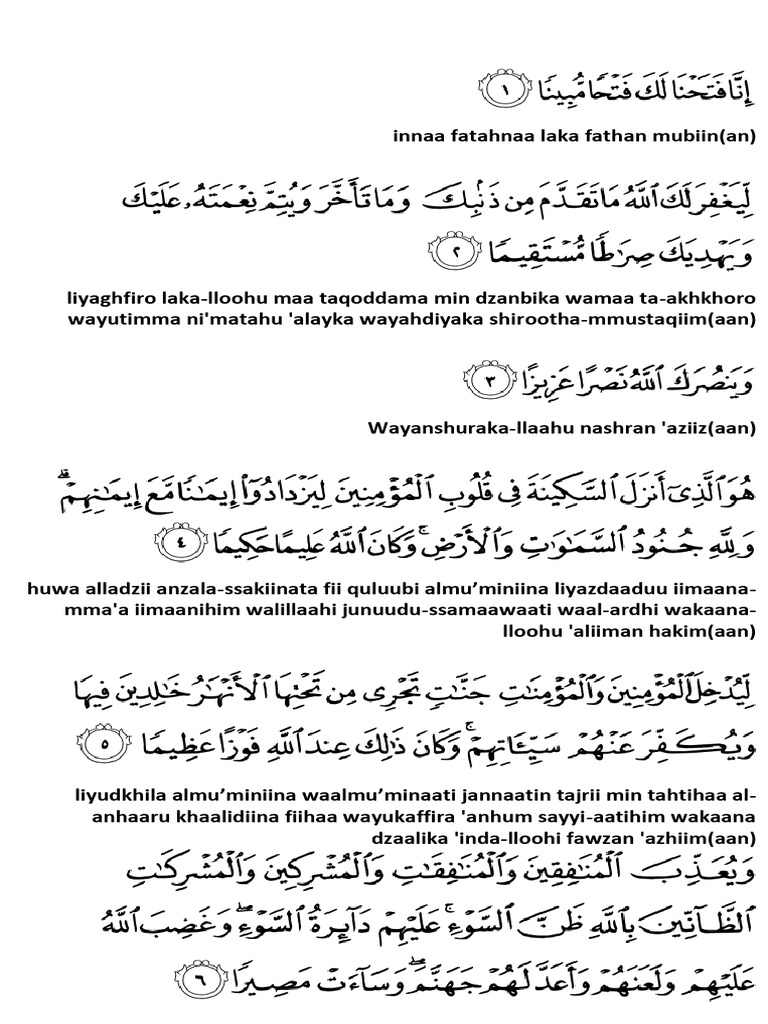 إِنَّا فَتَحْنَا لَكَ فَتْحًا مُّبِينًا ١
innaa fatahnaa laka fathan mubiin(an)
لِّيَغْفِرَ لَكَ ٱللَّهُ مَا تَقَدَّمَ مِن ذَنۢبِكَ وَمَا تَأَخَّرَ وَيُتِمَّ نِعْمَتَهُۥ عَلَيْكَ
وَيَهْدِيَكَ صِرَٰطًا مُّسْتَقِيمًا ٢
liyaghfiro laka-lloohu maa taqoddama min dzanbika wamaa ta-akhkhoro
wayutimma ni'matahu 'alayka wayahdiyaka shirootha-mmustaqiim(aan)
وَيَنصُرَكَ ٱللَّهُ نَصْرًا عَزِيزًا ٣
Wayanshuraka-llaahu nashran 'aziiz(aan)
هُوَ ٱلَّذِىٓ أَنزَلَ ٱلسَّكِينَةَ فِى قُلُوبِ ٱلْمُؤْمِنِينَ لِيَزْدَادُوٓا۟ إِيمَٰنًا مَّعَ إِيمَٰنِهِمْ ۗ
وَلِلَّهِ جُنُودُ ٱلسَّمَٰوَٰتِ وَٱلْأَرْضِ ۚ وَكَانَ ٱللَّهُ عَلِيمًا حَكِيمًا ٤
huwa alladzii anzala-ssakiinata fii quluubi almu’miniina liyazdaaduu iimaana-
mma'a iimaanihim walillaahi junuudu-ssamaawaati waal-ardhi wakaana-
lloohu 'aliiman hakim(aan)
لِّيُدْخِلَ ٱلْمُؤْمِنِينَ وَٱلْمُؤْمِنَٰتِ جَنَّٰتٍ تَجْرِى مِن تَحْتِهَا ٱلْأَنْهَٰرُ خَٰلِدِينَ فِيهَا
وَيُكَفِّرَ عَنْهُمْ سَيِّـَٔاتِهِمْ ۚ وَكَانَ ذَٰلِكَ عِندَ ٱللَّهِ فَوْزًا عَظِيمًا ٥
liyudkhila almu’miniina waalmu’minaati jannaatin tajrii min tahtihaa al-
anhaaru khaalidiina fiihaa wayukaffira 'anhum sayyi-aatihim wakaana
dzaalika 'inda-lloohi fawzan 'azhiim(aan)
وَيُعَذِّبَ ٱلْمُنَٰفِقِينَ وَٱلْمُنَٰفِقَٰتِ وَٱلْمُشْرِكِينَ وَٱلْمُشْرِكَٰتِ
ٱلظَّآنِّينَ بِٱللَّهِ ظَنَّ ٱلسَّوْءِ ۚ عَلَيْهِمْ دَآئِرَةُ ٱلسَّوْءِ ۖ وَغَضِبَ ٱللَّهُ
عَلَيْهِمْ وَلَعَنَهُمْ وَأَعَدَّ لَهُمْ جَهَنَّمَ ۖ وَسَآءَتْ مَصِيرًا ٦